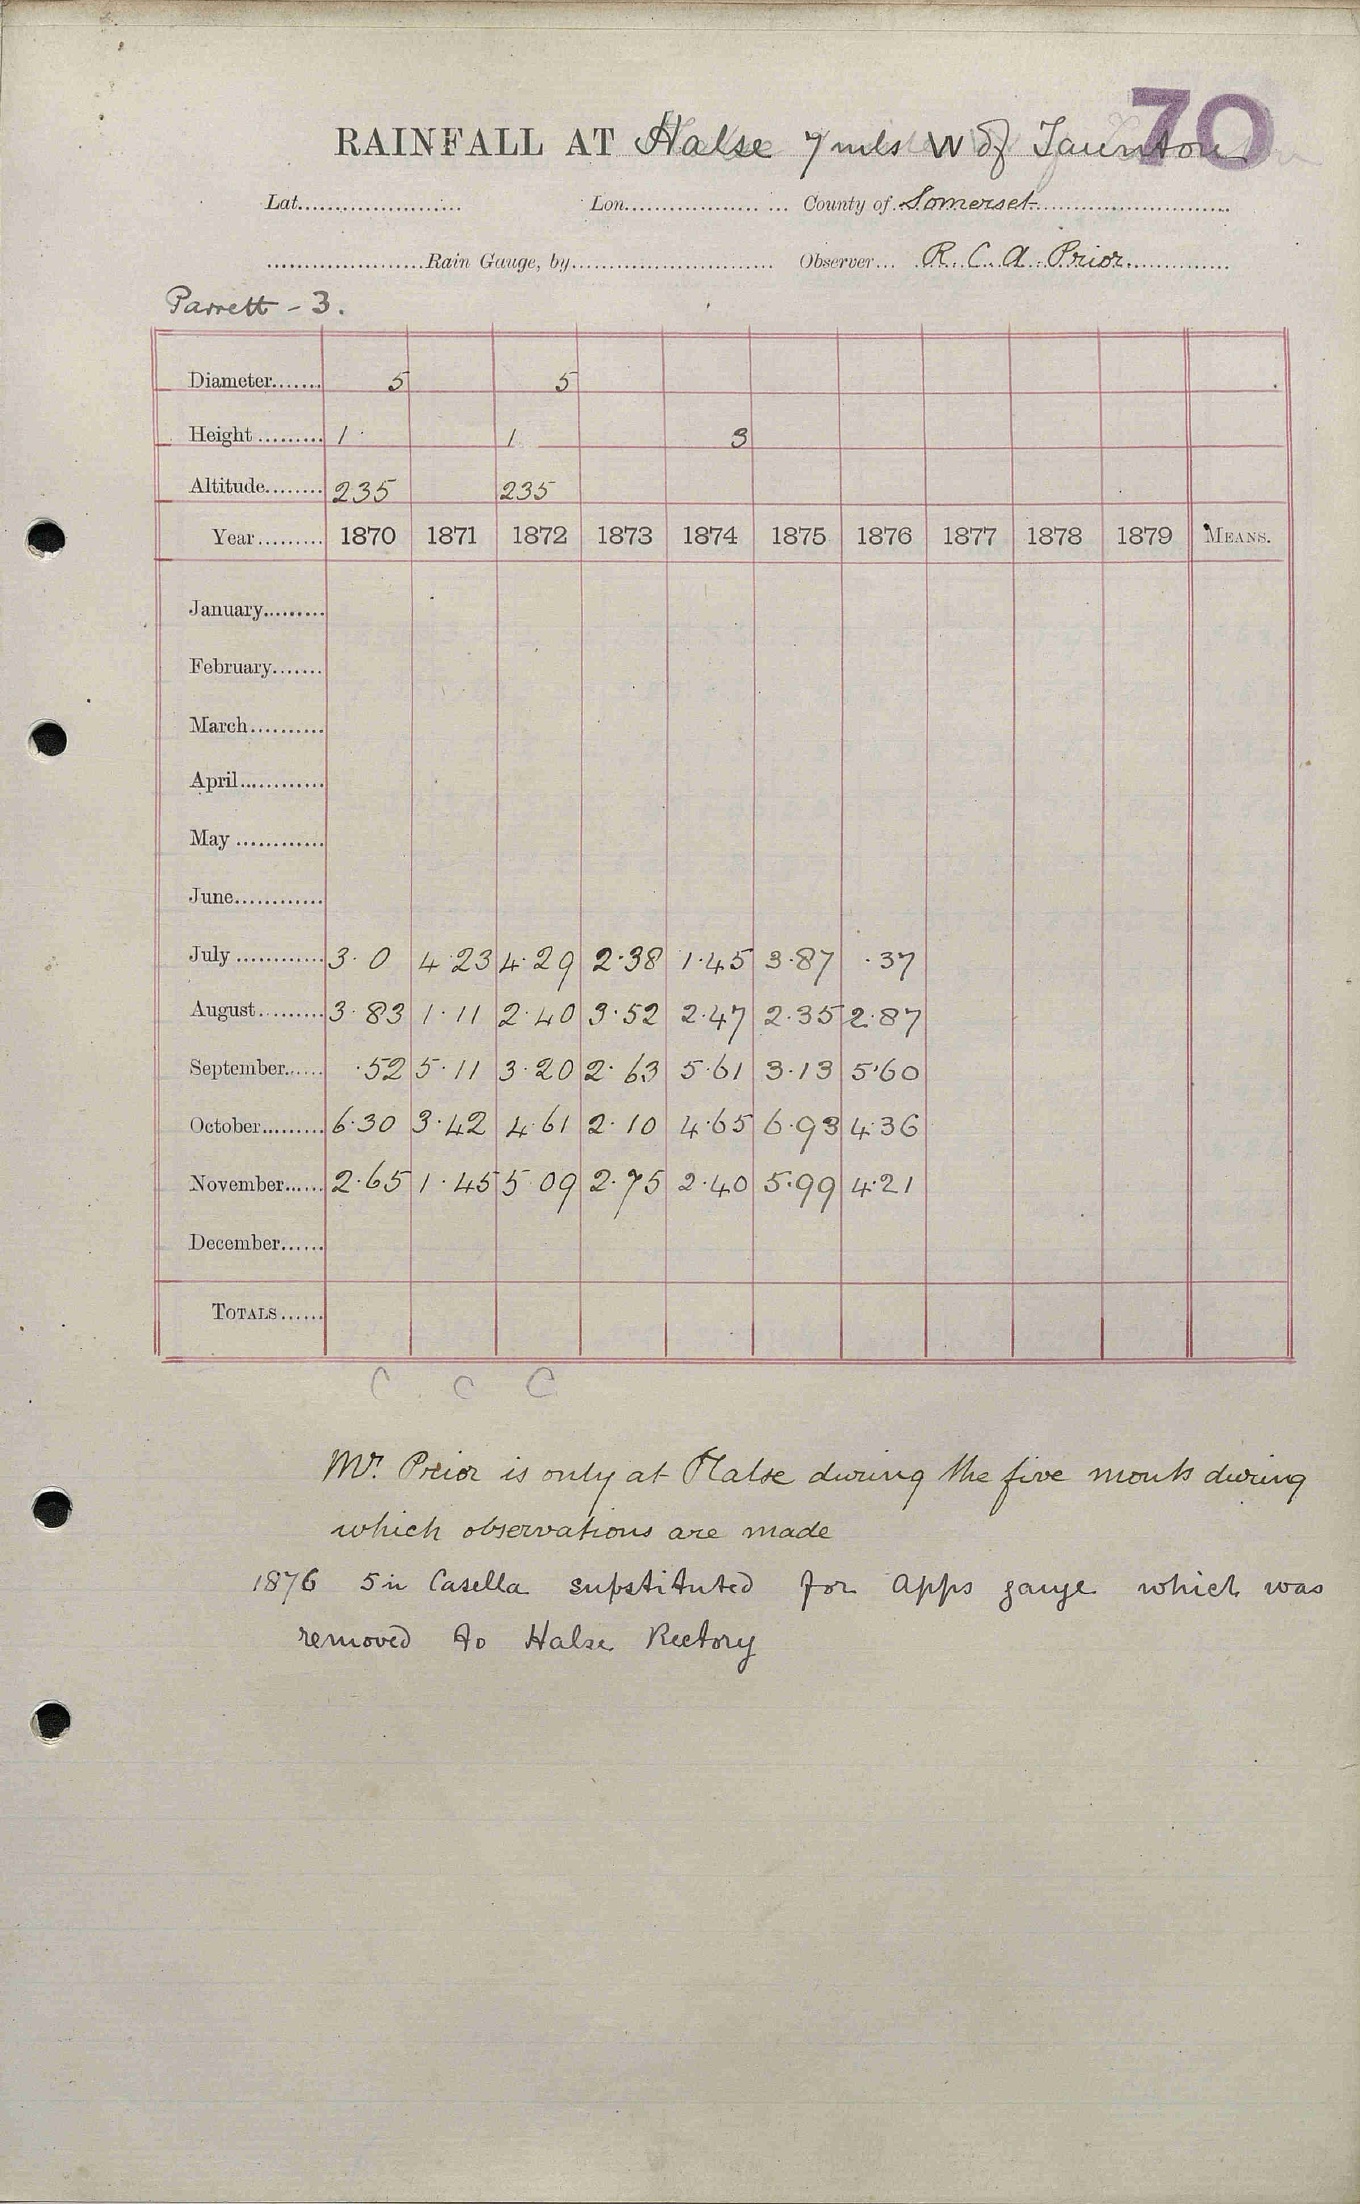 70
RAINFALL AT Halse 7 mls W of Taunton
Lat. Lon. County of Somerset
Rain Gauge, by Observer R. C. A. Prior
Parrett - 3.
Diameter 5 5
Height 1 1 3
Altitude 235 235
Year 1870 1871 1872 1873 1874 1875 1876 1877 1878 1879 MEANS.
January
February
March
April
May
June
July 3·0 4·23 4·29 2·38 1·45 3·87 ·37
August 3·83 1·11 2·40 3·52 2·47 2·35 2·87
September ·52 5·11 3·20 2·63 5·61 3·13 5·60
October 6·30 3·42 4·61 2·10 4·65 6·93 4·36
November 2·65 1·45 5·09 2·75 2·40 5·99 4·21
December
TOTALS
C C C
Mr. Prior is only at Halse during the five month during
which observations are made
1876 5 in Casella substituted for Apps gauge which was
removed to Halse Rectory